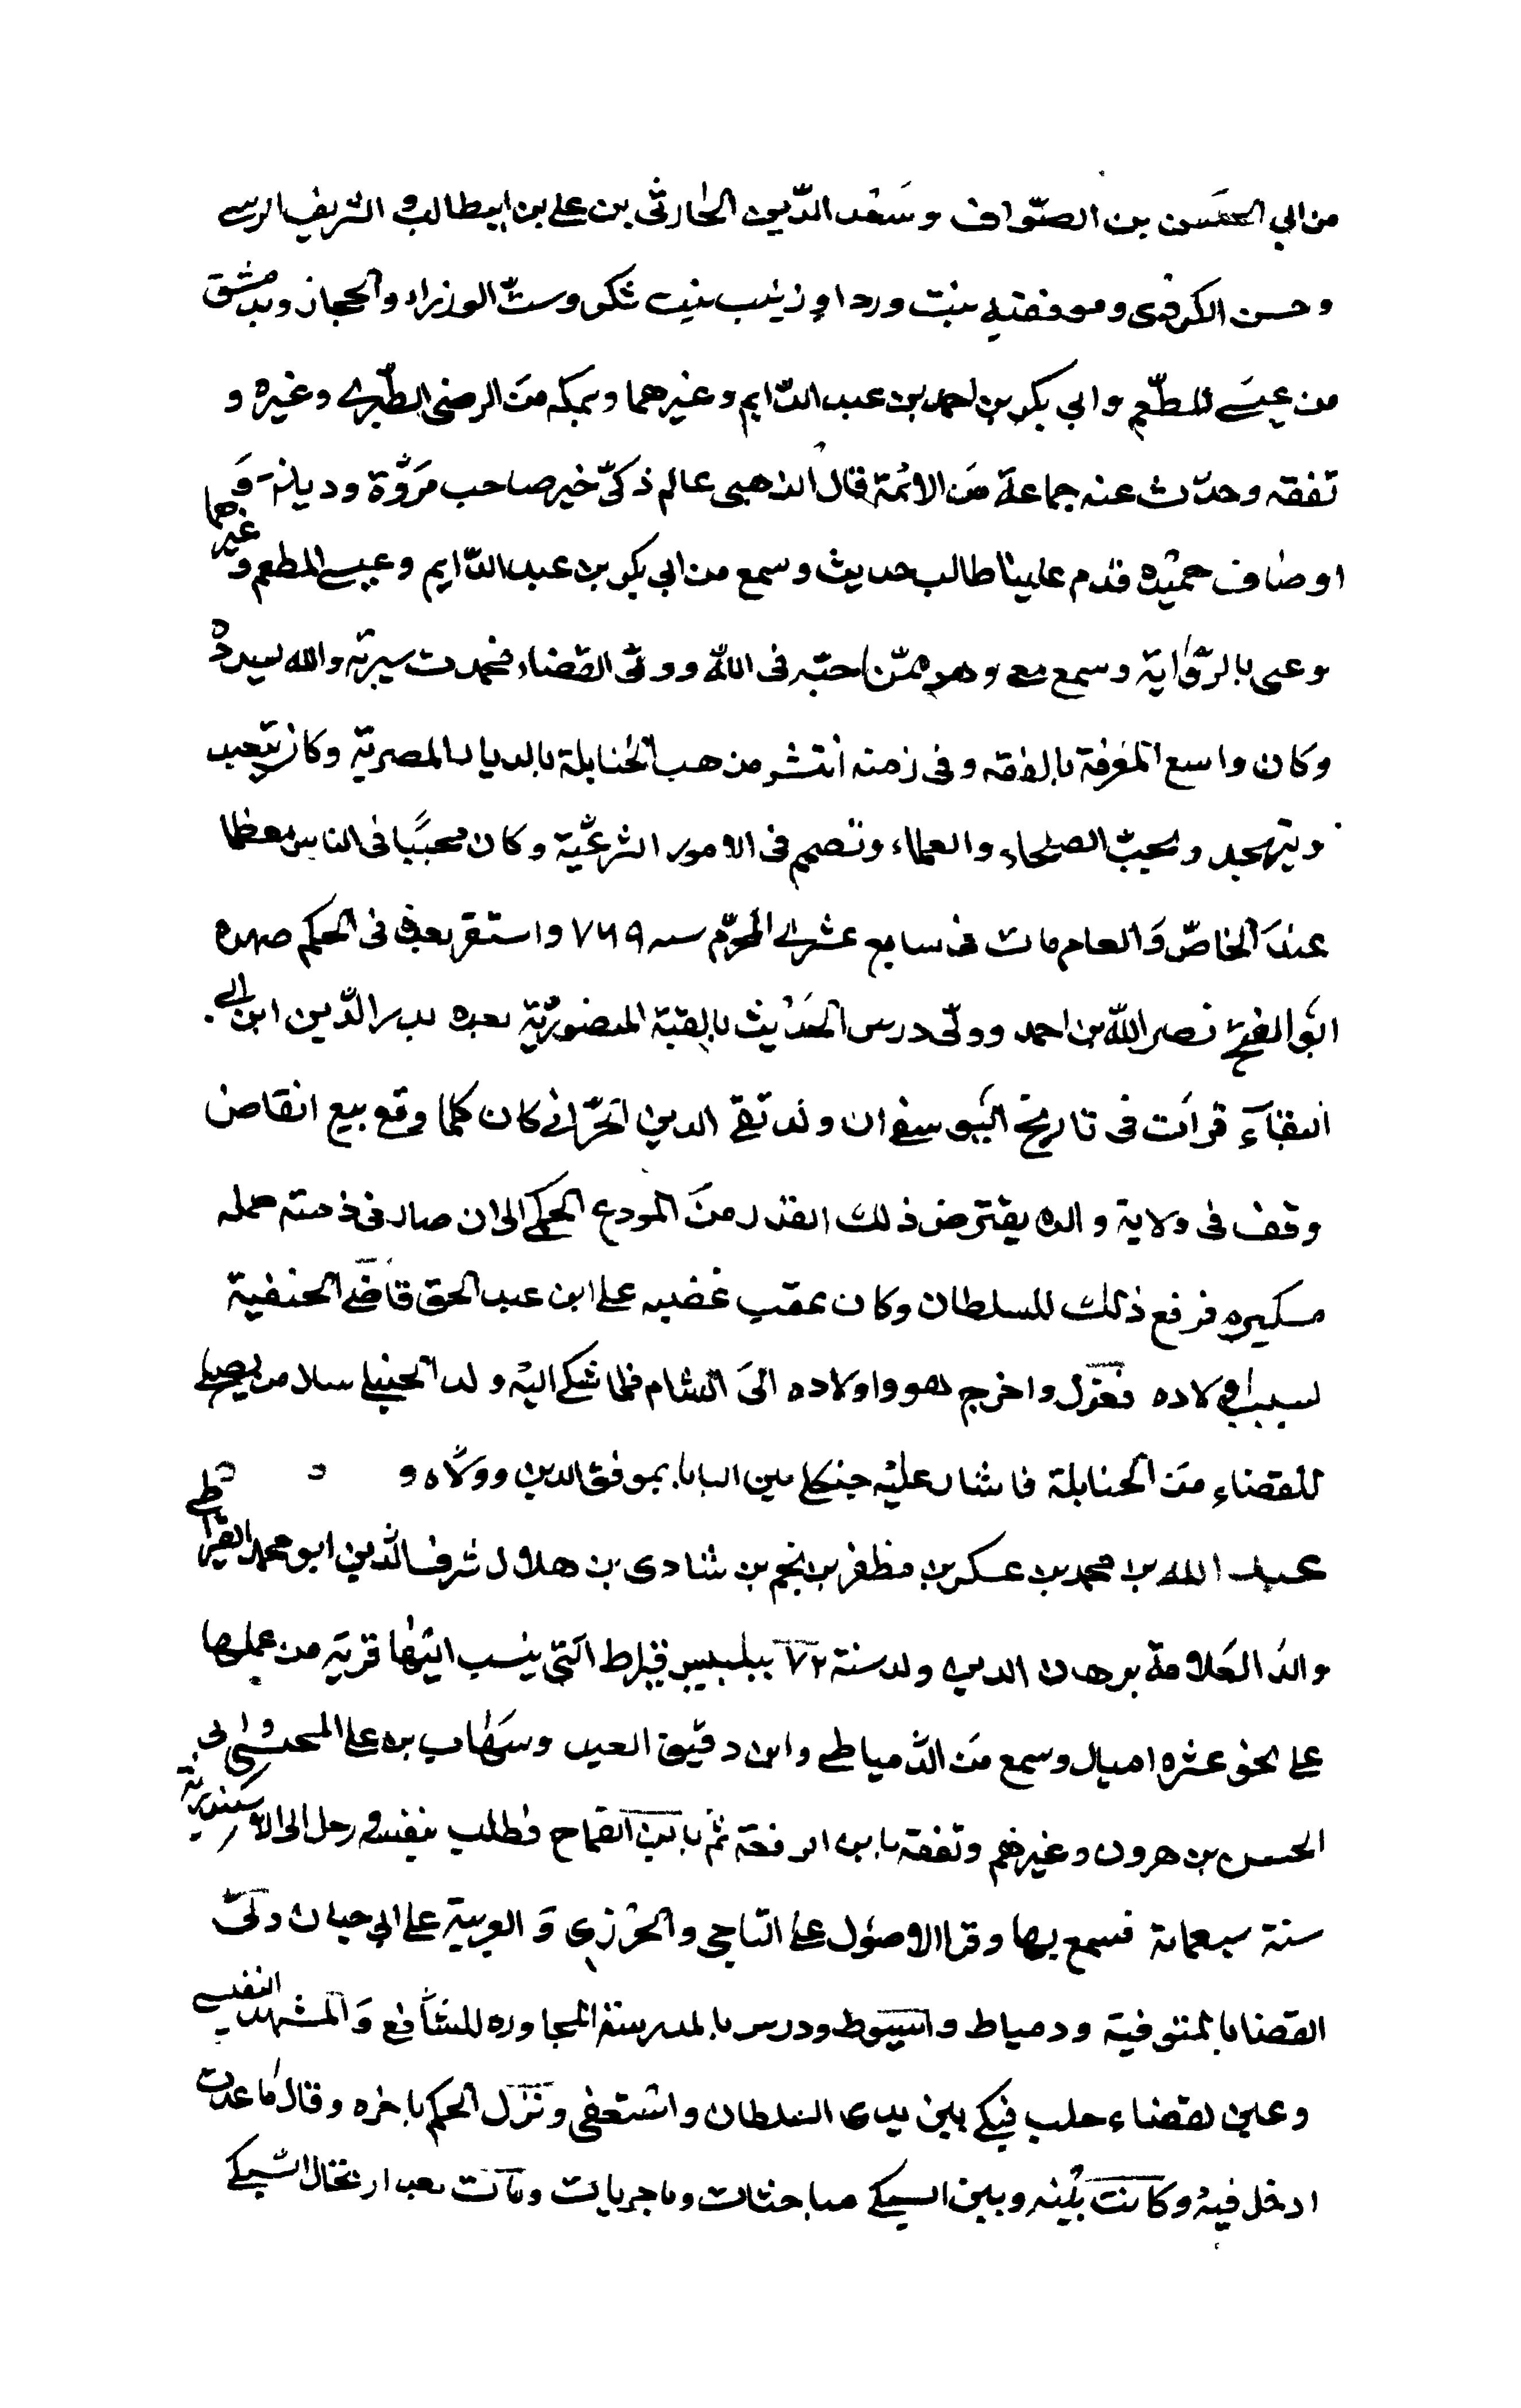 من ابي الحسن بن الصوّاف وسعد الدّين الحارثي بن علي بن ابيطالب و الشريف الرسي
وحسن الكردى وموفقته بنت وردا وزينب بنت شكر وست الوزراء والحجاز وبدمشق
من عيسى المطّعم وابي بكر بن احمد بن عبد الدّايم وغيرهما وبمكه من الرضى الطّبري وغيره و
تفقه وحدّث عنه جماعة من الائمة قال الذهبى عالم ذكىّ خير صاحب مروّة وديانة و
اوصاف حميده قدم علينا طالب حديث وسمع من ابي بكر بن عبد الدّايم وعيسى المطعم وغيرهما
وعنى بالرّواية وسمع معى وهو ممّن احبّه فى الله وولى القضاء فحمدت سيرته والله يسدده
وكان واسع المعرفة بالفقه وفى زمنه انتشر مذهب الحنابلة بالديار المصرية وكان يتعبد
ويتهجد ويحبّ الصلحاء والعلماء وتصمم فى الامور الشرعيّة وكان محببًا فى الناس معظما
عند الخاصّ والعام مات فى سابع عشرى المحرّم سنه ٧٦٩ واستقر بعده فى الحكم صهره
ابو الفتح نصر الله بن احمد وولى درس الحديث بالقبة المنصوريّة بعده بدر الدّين ابن ابي
البقاء قرات فى تاريخ اليوسفى ان ولد تقى الدين الحرّانى كان كلما وقع بيع انقاض
وقف فى ولاية والده يقترض ذلك القدر من المودع الحكمى الى ان صار فى ذمته جمله
مكثيره فرفع ذلك للسلطان وكان عقب غضبه على ابن عبد الحق قاضى الحنفية
لسبب اولاده فعزل واخرج هو واولاده الى الشام فلما شكى اليه ولد الحنبلى سال من يصلح
للقضاء من الحنابلة فاشار عليه جنكلى بين البابا بموفق الدين وولّاه و
عبد الله بن محمد بن عسكر بن مظفر بن نجم بن شادى بن هلال شرف الدّين ابو محمد القيراطى
والد العلامة برهان الدين ولد سنة ٧٢ ببلبيس قيراط التى ينسب اليها قرية من عملها
على نحو عشره اميال وسمع من الدّمياطى وابن دقيق العيد وشهاب بن على المحسنى وابى
الحسن بن هرون وغيرهم وتفقه بابن الرفعة ثم بابن القماح وطلب بنفسه ورحل الى الاسكندرية
سنة سبعمائة فسمع بها وقرا الاصول على التاجى والجزرى و العربية على ابي حيان وولى
القضا بالمنوفية ودمياط واسيوط ودرس بالمدرسة المجاوره للشافعى والمشهد النفيسى
وعين لقضاء حلب فبكى بين يدى السلطان واستعفى ونزل الحكم باخره وقال ما عدت
ادخل فيه وكانت بينه وبين السبكى مباحثات وماجريات ومات بعد ارتحال السبكى